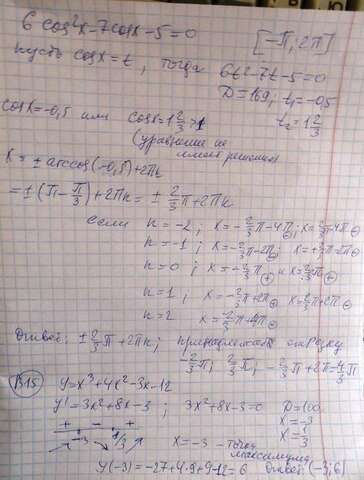 6 cos²x-7cosx-5=0 [-π; 2π]
пусть cosx=t, тогда 6t²-7t-5=0
D=169; t₁=-0,5
t₂=1 2/3
cosx=-0,5 или cosx=1 2/3 >1
(уравнение не имеет решения)
x=±arccos(-0,5)+2πk
=±(π-π/3)+2πk=±2/3π+2πk
если n=-2; x=-2/3π-4π⊖; x=2/3π-4π⊖
n=-1; x=-2/3π-2π⊖; x=+2/3π-2π⊖
n=0; x=-2/3π⊕ и x=2/3π⊕
n=1; x=-2/3π+2π⊕ x=2/3π+2π⊖
n=2 x=-2/3π+4π⊖
Ответ: ±2/3π+2πk; принадлежат отрезку
-2/3π; 2/3π; -2/3π+2π=4/3π
B15 y=x³+4x²-3x-12
y'=3x²+8x-3; 3x²+8x-3=0 D=100
+ - +
-3 1/3
x=-3
x=1/3
x=-3 - точка максимума
y(-3)=-27+4·9+9-12=6 Ответ: (-3; 6)